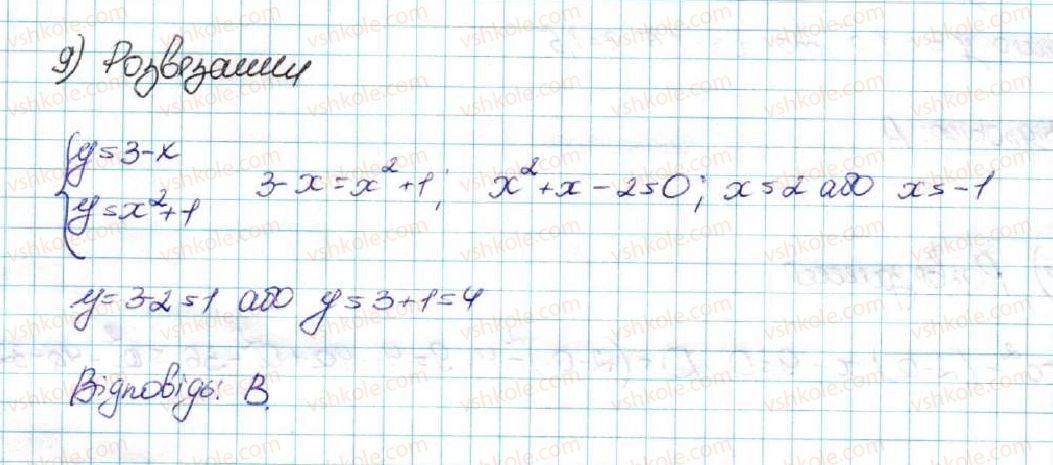 9) Розв'язання
{y=3-x
{y=x²+1 3-x=x²+1; x²+x-2=0; x=2 або x=-1
y=3-2=1 або y=3+1=4
Відповідь: В.